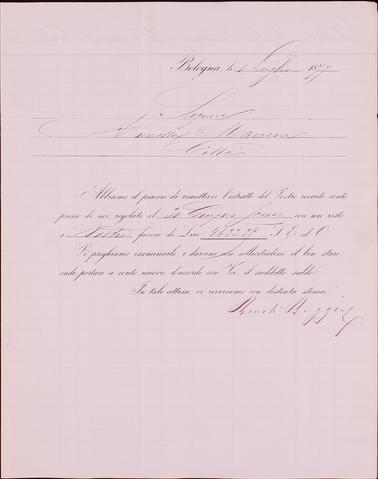 Bologna, li 1 Luglio 1877
Signori
Mancini
Città
Abbiamo il piacere di rimettervi l'estratto del Vostro riverito conto
presso di noi, regolato al 30 Giugno con un resto
a Nostro favore di Lire
Vi preghiamo esaminarlo, e darcene con sollecitudine il ben stare,
onde portare a conto nuovo, d'accordo con Voi, il suddetto saldo.
In tale attesa, vi riveriamo con distinta stima